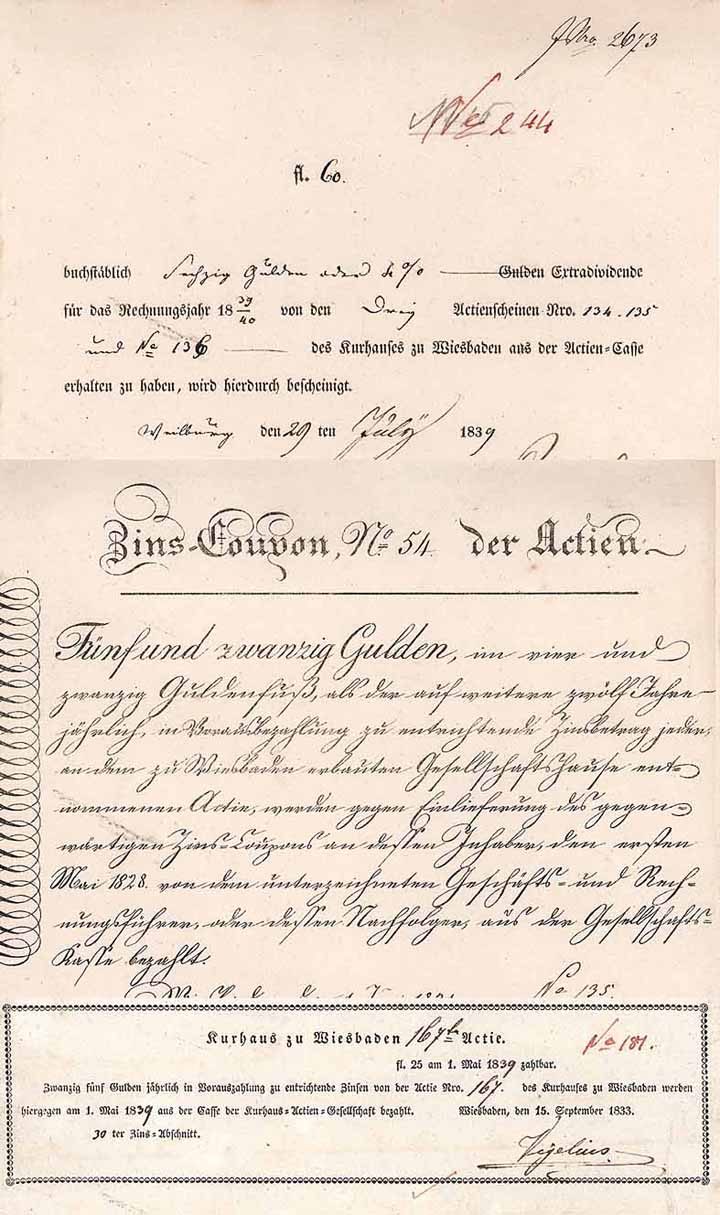 JNro. 2673
No 244
fl. 60.
buchstäblich Sechzig Gulden oder 4 % Gulden Extradividende
für das Rechnungsjahr 18 39/40 von den Drei Actienscheinen Nro. 134. 135
und No 136 des Kurhauses zu Wiesbaden aus der Actien=Casse
erhalten zu haben, wird hierdurch bescheinigt.
Weilburg den 29 ten July 1839
Zins-Coupon, No 54 der Actien
Fünf und zwanzig Gulden, im vier und
zwanzig Guldenfuß, als der auf weitere zwölf Jahre
jährlich, in Vorausbezahlung zu entrichtende Zinsbetrag jeder,
an dem zu Wiesbaden erbauten Gesellschaftshause ent=
nommenen Actie, werden gegen Einlieferung des gegen=
wärtigen Zins=Coupons an dessen Inhaber, den ersten
Mai 1828. von dem unterzeichneten Geschäfts= und Rech=
nungsführer, oder dessen Nachfolger, aus der Gesellschafts=
Kasse bezahlt.
No 135.
Kurhaus zu Wiesbaden 167te Actie.
No 181.
fl. 25 am 1. Mai 1839 zahlbar.
Zwanzig fünf Gulden jährlich in Vorauszahlung zu entrichtende Zinsen von der Actie Nro. 167. des Kurhauses zu Wiesbaden werden
hiergegen am 1. Mai 1839 aus der Casse der Kurhaus=Actien=Gesellschaft bezahlt. Wiesbaden, den 15. September 1833.
30 ter Zins=Abschnitt.
Vigelius